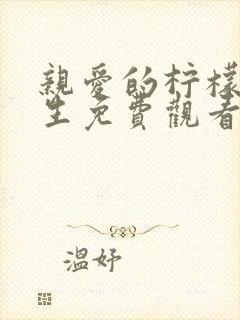 親愛的柠檬
生免費觀看
溫妤